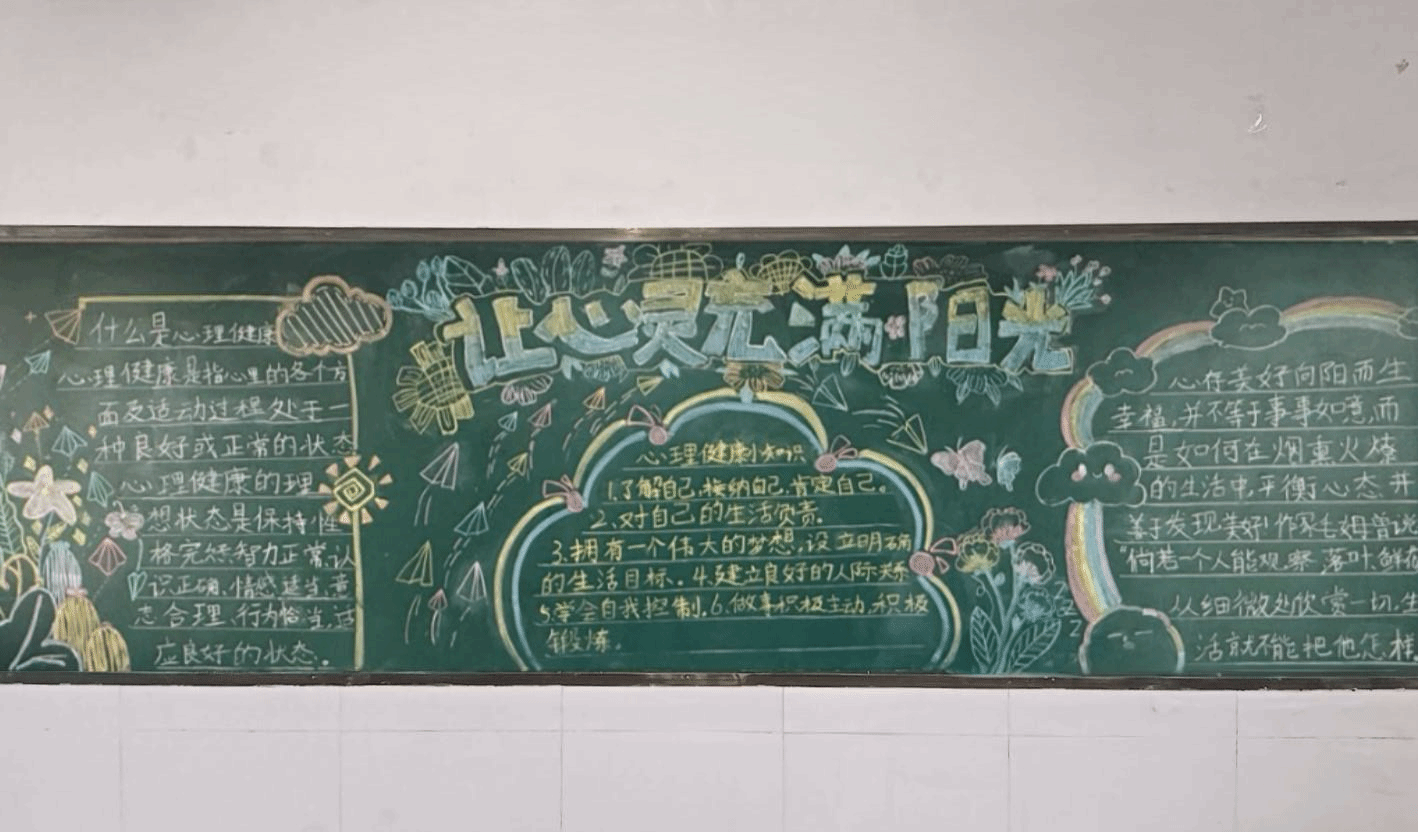 让心灵充满阳光
什么是心理健康
心理健康是指心里的各个方
面及适动过程处于一
种良好或正常的状态
心理健康的理
想状态是保持性
格完好智力正常、认
识正确、情感适当、意
志合理、行为恰当、适
应良好的状态。
心理健康小知识
1.了解自己,接纳自己,肯定自己。
2、对自己的生活负责。
3.拥有一个伟大的梦想,设立明确
的生活目标。4.建立良好的人际关系
5.学会自我控制.6.做事积极主动,积极
锻炼。
心存美好向阳而生
幸福,并不等于事事如意,而
是如何在烟熏火燎
的生活中,平衡心态,并
善于发现美好!作家毛姆曾说
“倘若一个人能观察落叶、鲜花
从细微处欣赏一切,生
活就不能把他怎样